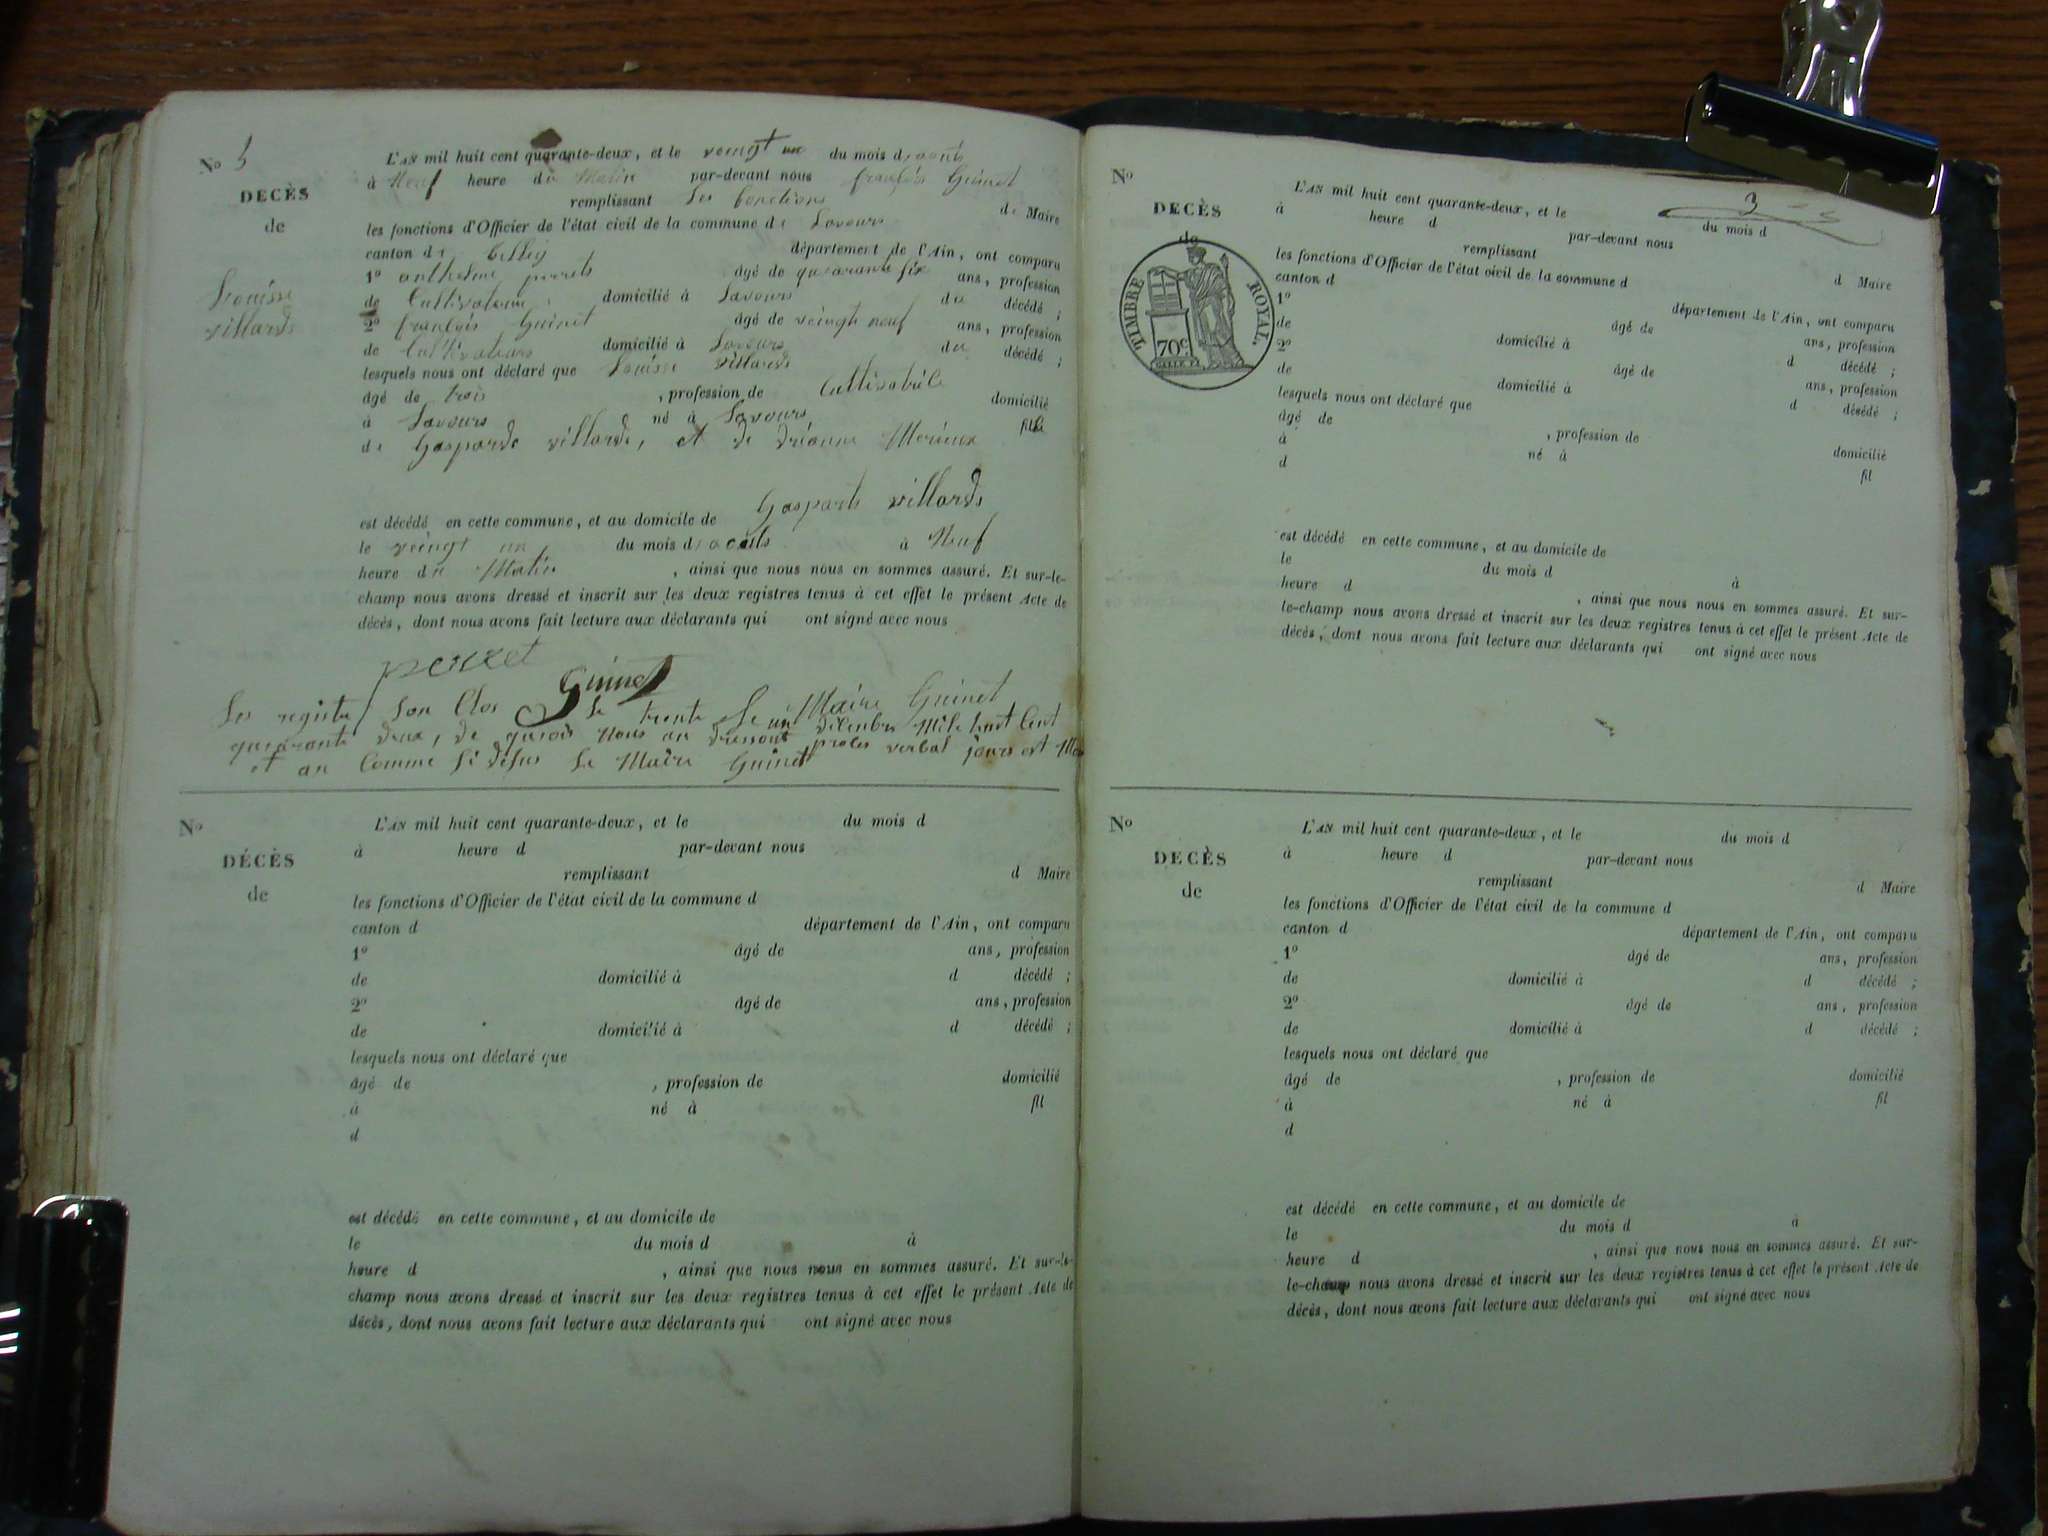 No 5
DECÈS
de
Louisse
villards
L'AN mil huit cent quarante-deux, et le veingt un du mois d'aouts
à Neuf heure du Matin par-devant nous françois Guinet
remplissant Les fonctions de Maire
les fonctions d'Officier de l'état civil de la commune de Lavours
canton de Belley département de l'Ain, ont comparu
1º anthelme perrets âgé de quarante six ans, profession
de Cultivateur domicilié à Lavours du décédé ;
2º françois Guinet âgé de veingt neuf ans, profession
de Cultivateurs domicilié à Lavours du décédé ;
lesquels nous ont déclaré que Louisse villards
âgé de trois , profession de domicilié
à Lavours né à Lavours fille
de Gasparde villards, et de Merieux
est décédé en cette commune, et au domicile de Gasparts villards
le veingt un du mois d'aouts à Neuf
heure du Matin , ainsi que nous nous en sommes assuré. Et sur-le-
champ nous avons dressé et inscrit sur les deux registres tenus à cet effet le présent Acte de
décès, dont nous avons fait lecture aux déclarants qui ont signé avec nous
perret
Guinet Le Maire Guinet
Les registre son Clos Le trente un décembre Mile huit Cent
quarante deux, de quoi Nous an dressont proces verbal jours et
et an Comme si desus Le Maire Guinet
No
DÉCÈS
de
L'AN mil huit cent quarante-deux, et le du mois d
à heure d par-devant nous
remplissant d Maire
les fonctions d'Officier de l'état civil de la commune d
canton d département de l'Ain, ont comparu
1º âgé de ans, profession
de domicilié à d décédé ;
2º âgé de ans, profession
de domicilié à d décédé ;
lesquels nous ont déclaré que
âgé de , profession de domicilié
à né à fil
d
est décédé en cette commune, et au domicile de
le du mois d à
heure d , ainsi que nous nous en sommes assuré. Et sur-le-
champ nous avons dressé et inscrit sur les deux registres tenus à cet effet le présent Acte de
décès, dont nous avons fait lecture aux déclarants qui ont signé avec nous
No
DECÈS
de
TIMBRE ROYAL.
70c.
3
L'AN mil huit cent quarante-deux, et le du mois d
à heure d par-devant nous
remplissant d Maire
les fonctions d'Officier de l'état civil de la commune d
canton d département de l'Ain, ont comparu
1º âgé de ans, profession
de domicilié à d décédé ;
2º âgé de ans, profession
de domicilié à d décédé ;
lesquels nous ont déclaré que
âgé de , profession de domicilié
à né à fil
d
est décédé en cette commune, et au domicile de
le du mois d à
heure d , ainsi que nous nous en sommes assuré. Et sur-
le-champ nous avons dressé et inscrit sur les deux registres tenus à cet effet le présent Acte de
décès, dont nous avons fait lecture aux déclarants qui ont signé avec nous
No
DECÈS
de
L'AN mil huit cent quarante-deux, et le du mois d
à heure d par-devant nous
remplissant d Maire
les fonctions d'Officier de l'état civil de la commune d
canton d département de l'Ain, ont comparu
1º âgé de ans, profession
de domicilié à d décédé ;
2º âgé de ans, profession
de domicilié à d décédé ;
lesquels nous ont déclaré que
âgé de , profession de domicilié
à né à fil
d
est décédé en cette commune, et au domicile de
le du mois d à
heure d , ainsi que nous nous en sommes assuré. Et sur-
le-champ nous avons dressé et inscrit sur les deux registres tenus à cet effet le présent Acte de
décès, dont nous avons fait lecture aux déclarants qui ont signé avec nous